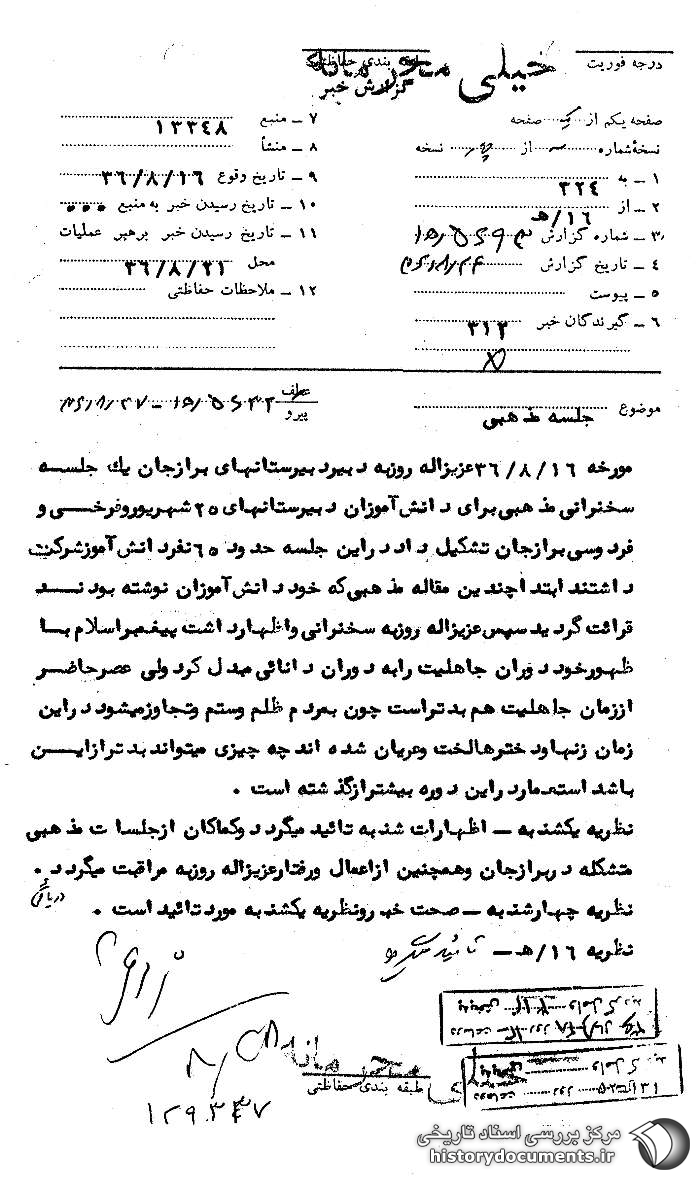 درجه فوریت
خیلی محرمانه
طبقه بندی حفاظتی
گزارش خبر
صفحه یکم از یک صفحه
نسخهٔ شماره از نسخه
۱ ـ به ۳۲۴
۲ ـ از ۱۶/هـ
۳ ـ شماره گزارش
۴ ـ تاریخ گزارش
۵ ـ پیوست
۶ ـ گیرندگان خبر ۳۱۲
۷ ـ منبع ۱۳۳۴۸
۸ ـ منشأ
۹ ـ تاریخ وقوع ۳۶/۸/۱۶
۱۰ ـ تاریخ رسیدن خبر به منبع
۱۱ ـ تاریخ رسیدن خبر برهبر عملیات
محل ۳۶/۸/۲۱
۱۲ ـ ملاحظات حفاظتی
موضوع جلسه مذهبی
عطف
پیرو
مورخه ۳۶/۸/۱۶ عزیزاله روزبه دبیر دبیرستانهای برازجان یك جلسه
سخنرانی مذهبی برای دانش آموزان دبیرستانهای ۲۵ شهریور و فرخی و
فردوسی برازجان تشکیل داد در این جلسه حدود ۶۵ نفر دانش آموز شرکت
داشتند ابتدا چندین مقاله مذهبی که خود دانش آموزان نوشته بودند
قرائت گردید سپس عزیزاله روزبه سخنرانی و اظهار داشت پیغمبر اسلام با
ظهور خود دوران جاهلیت را به دوران دانائی مبدل کرد ولی عصر حاضر
از زمان جاهلیت هم بدتر است چون بمردم ظلم و ستم و تجاوز میشود در این
زمان زنها و دخترها لخت و عریان شده اند چه چیزی میتواند بدتر از این
باشد استعمار در این دوره بیشتر از گذشته است .
نظریه یکشنبه ـ اظهارات شنبه تائید میگردد و کماکان از جلسات مذهبی
متشکله در برازجان و همچنین از اعمال و رفتار عزیزاله روزبه مراقبت میگردد .
نظریه چهارشنبه ـ صحت خبر و نظریه یکشنبه مورد تائید است .
نظریه ۱۶/هـ ـ تائید میگردد
محرمانه
طبقه بندی حفاظتی
مرکز بررسی اسناد تاریخی
historydocuments.ir